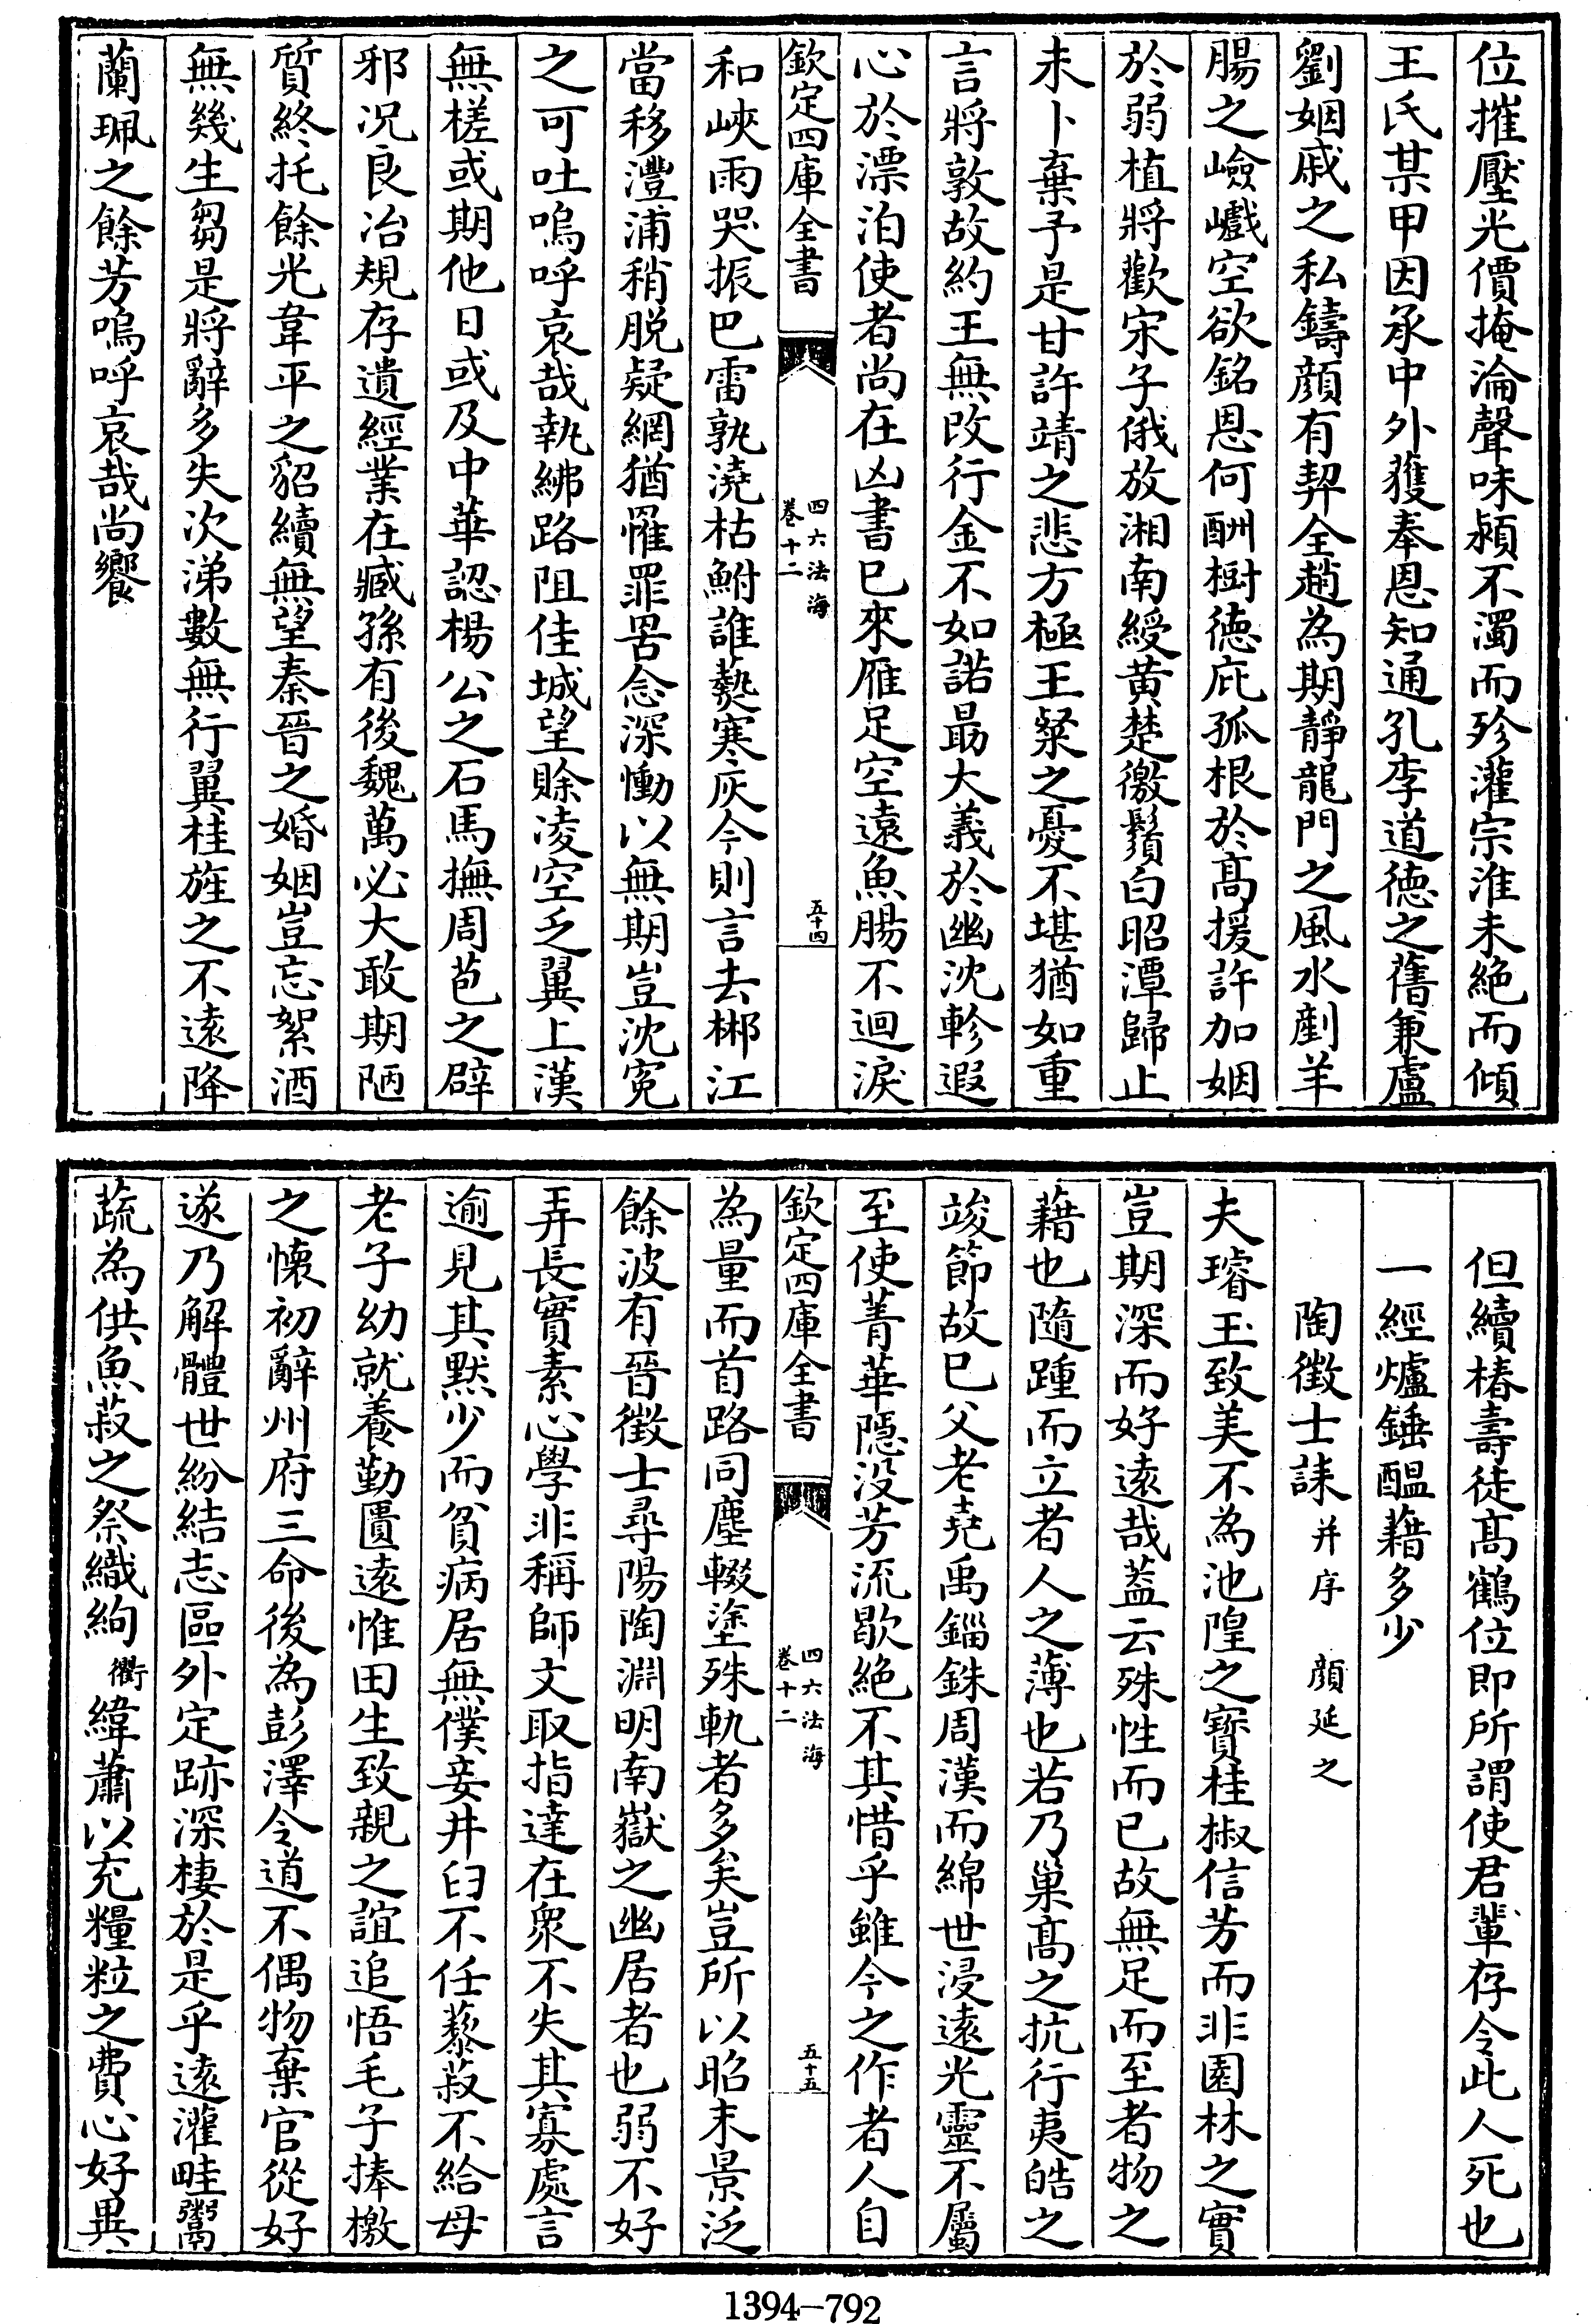 位摧壓光價掩淪聲味潁不濁而殄灌宗淮未絶而傾
王氏某甲因承中外獲奉恩知通孔李道徳之舊兼盧
劉姻戚之私鑄顔有契全趙為期靜龍門之風水剷羊
腸之嶮巇空欲銘恩何酬樹徳庇孤根於髙援許加姻
於弱植將歡宋子俄放湘南綬黄楚徼鬚白昭潭歸止
未卜棄予是甘許靖之悲方極王粲之憂不堪猶如重
言將敦故約王無改行金不如諾最大義於幽沈軫遐
心於漂泊使者尚在凶書已來雁足空逺魚腸不迴淚
欽定四庫全書
四六法海
卷十二
五十四
和峽雨哭振巴雷孰澆枯鮒誰爇寒灰今則言去郴江
當移灃浦稍脱疑網猶罹罪罟念深慟以無期豈沈寃
之可吐嗚呼哀哉執紼路阻佳城望賒凌空乏翼上漢
無槎或期他日或及中華認楊公之石馬撫周苞之辟
邪况良冶規存遺經業在臧孫有後魏萬必大敢期陋
質終托餘光韋平之貂續無望秦晉之婚姻豈忘絮酒
無幾生芻是將辭多失次涕數無行翼桂旌之不逺降
蘭珮之餘芳嗚呼哀哉尚饗
但續椿壽徒髙鶴位即所謂使君輩存令此人死也
一經爐錘醖藉多少
陶徴士誄并序 顔延之
夫璿玉致美不為池隍之寳桂椒信芳而非園林之實
豈期深而好逺哉葢云殊性而已故無足而至者物之
藉也隨踵而立者人之薄也若乃巢髙之抗行夷皓之
竣節故已父老堯禹錙銖周漢而綿世浸逺光靈不屬
至使菁華隱没芳流歇絶不其惜乎雖今之作者人自
欽定四庫全書
四六法海
卷十二
五十五
為量而首路同塵輟塗殊軌者多矣豈所以昭末景泛
餘波有晉徴士尋陽陶淵明南嶽之幽居者也弱不好
弄長實素心學非稱師文取指達在衆不失其寡處言
逾見其黙少而貧病居無僕妾井臼不任藜菽不給母
老子幼就養勤匱逺惟田生致親之誼追悟毛子捧檄
之懐初辭州府三命後為彭澤令道不偶物棄官從好
遂乃解體世紛結志區外定跡深棲於是乎逺灌畦鬻
蔬為供魚菽之祭織絇衢緯蕭以充糧粒之費心好異
1394—792